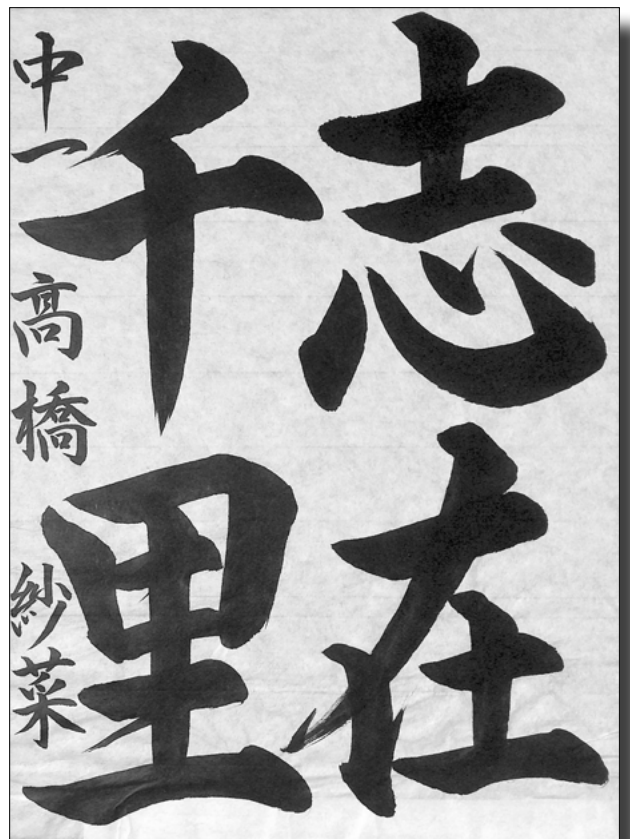 志在
千里
中一 高橋 紗菜